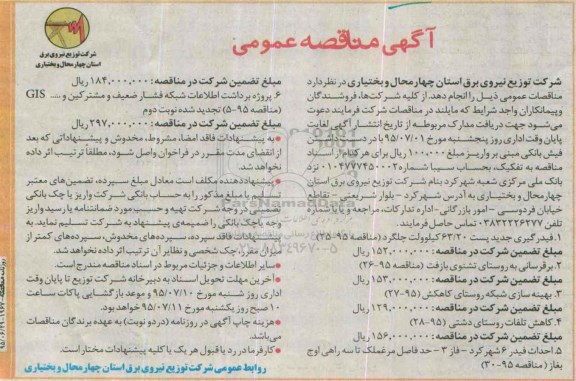 آگهی مناقصه عمومی
شرکت توزیع نیروی برق
استان چهارمحال و بختیاری
شرکت توزیع نیروی برق استان چهارمحال و بختیاری در نظر دارد
مناقصات عمومی ذیل را انجام دهد. از کلیه شرکت‌ها، فروشندگان
و پیمانکاران واجد شرایط که مایلند در مناقصات شرکت فرمایند دعوت
می‌شود جهت دریافت مدارک مربوطه از تاریخ انتشار آگهی لغایت
پایان وقت اداری روز پنجشنبه مورخ ۹۵/۰۷/۰۱ با در دست
فیش بانکی مبنی بر واریز مبلغ ۱۰۰،۰۰۰ ریال برای هر کدام از اسناد
مناقصه به تفکیک، بحساب سیبا شماره ۰۱۰۴۷۷۷۴۵۰۰۰۲ نزد
بانک ملی مرکزی شعبه شهرکرد بنام شرکت توزیع نیروی برق استان
چهارمحال و بختیاری به آدرس شهرکرد - بلوار شریعتی - تقاطع
خیابان فردوسی - امور بازرگانی - اداره تدارکات، مراجعه و یا با شماره
تلفن ۰۳۸۳۲۲۲۶۲۷۷ تماس حاصل فرمایند.
۱. فیدرگیری جدید پست ۶۳/۲۰ کیلوولت چلگرد (مناقصه ۹۵-۲۵)
مبلغ تضمین شرکت در مناقصه: ۱۵۲،۰۰۰،۰۰۰ ریال
۲. برقرسانی به روستای تشنوی بازفت (مناقصه ۹۵-۲۶)
مبلغ تضمین شرکت در مناقصه: ۱۵۳،۰۰۰،۰۰۰ ریال
۳. بهینه سازی شبکه روستای کاهکش (مناقصه ۹۵-۲۷)
مبلغ تضمین شرکت در مناقصه: ۱۲۹،۰۰۰،۰۰۰ ریال
۴. کاهش تلفات روستای دشتی (مناقصه ۹۵-۲۸)
مبلغ تضمین شرکت در مناقصه: ۱۵۶،۰۰۰،۰۰۰ ریال
۵. احداث فیدر ۶ شهرکرد - فاز ۳ - حد فاصل مرغملک تا سه راهی اوج
بغاز (مناقصه ۹۵-۳۰)
مبلغ تضمین شرکت در مناقصه: ۱۸۴،۰۰۰،۰۰۰ ریال
۶. پروژه برداشت اطلاعات شبکه فشار ضعیف و مشترکین و ..... GIS
(مناقصه ۹۵-۵) تجدید شده نوبت دوم
مبلغ تضمین شرکت در مناقصه: ۲۹۷،۰۰۰،۰۰۰ ریال
• به پیشنهادات فاقد امضا، مشروط، مخدوش و پیشنهاداتی که بعد
از انقضای مدت مقرر در فراخوان واصل شود، مطلقاً ترتیب اثر داده
نخواهد شد.
• پیشنهاددهنده مکلف است معادل مبلغ سپرده، تضمین‌های معتبر
تسلیم یا مبلغ مذکور را به حساب بانکی شرکت واریز یا چک بانکی
تضمینی در وجه شرکت تهیه و حسب مورد ضمانتنامه یا رسید واریز
وجه یا چک بانکی را ضمیمه‌ی پیشنهاد به شرکت تسلیم نماید. به
پیشنهادات فاقد سپرده، سپرده‌های مخدوش، سپرده‌های کمتر از
میزان مقرر، چک شخصی و نظایر آن ترتیب اثر داده نخواهد شد.
• سایر اطلاعات و جزئیات مربوط در اسناد مناقصه مندرج است.
• آخرین مهلت تحویل اسناد به دبیرخانه شرکت توزیع تا پایان وقت
اداری روز شنبه مورخ ۹۵/۰۷/۱۰ و موعد بازگشایی پاکات ساعت
۱۰ صبح روز یکشنبه مورخ ۹۵/۰۷/۱۱ خواهد بود.
• هزینه چاپ آگهی در روزنامه (در دو نوبت) به عهده برندگان مناقصات
می‌باشد.
• کارفرما در رد یا قبول هر یک یا کلیه پیشنهادات مختار است.
روابط عمومی شرکت توزیع نیروی برق استان چهارمحال و بختیاری